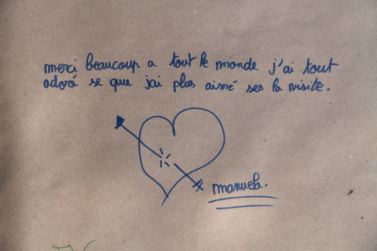 merci beaucoup a tout le monde j'ai tout
adoré se que jai plus aimé ses la visite.
manuela.